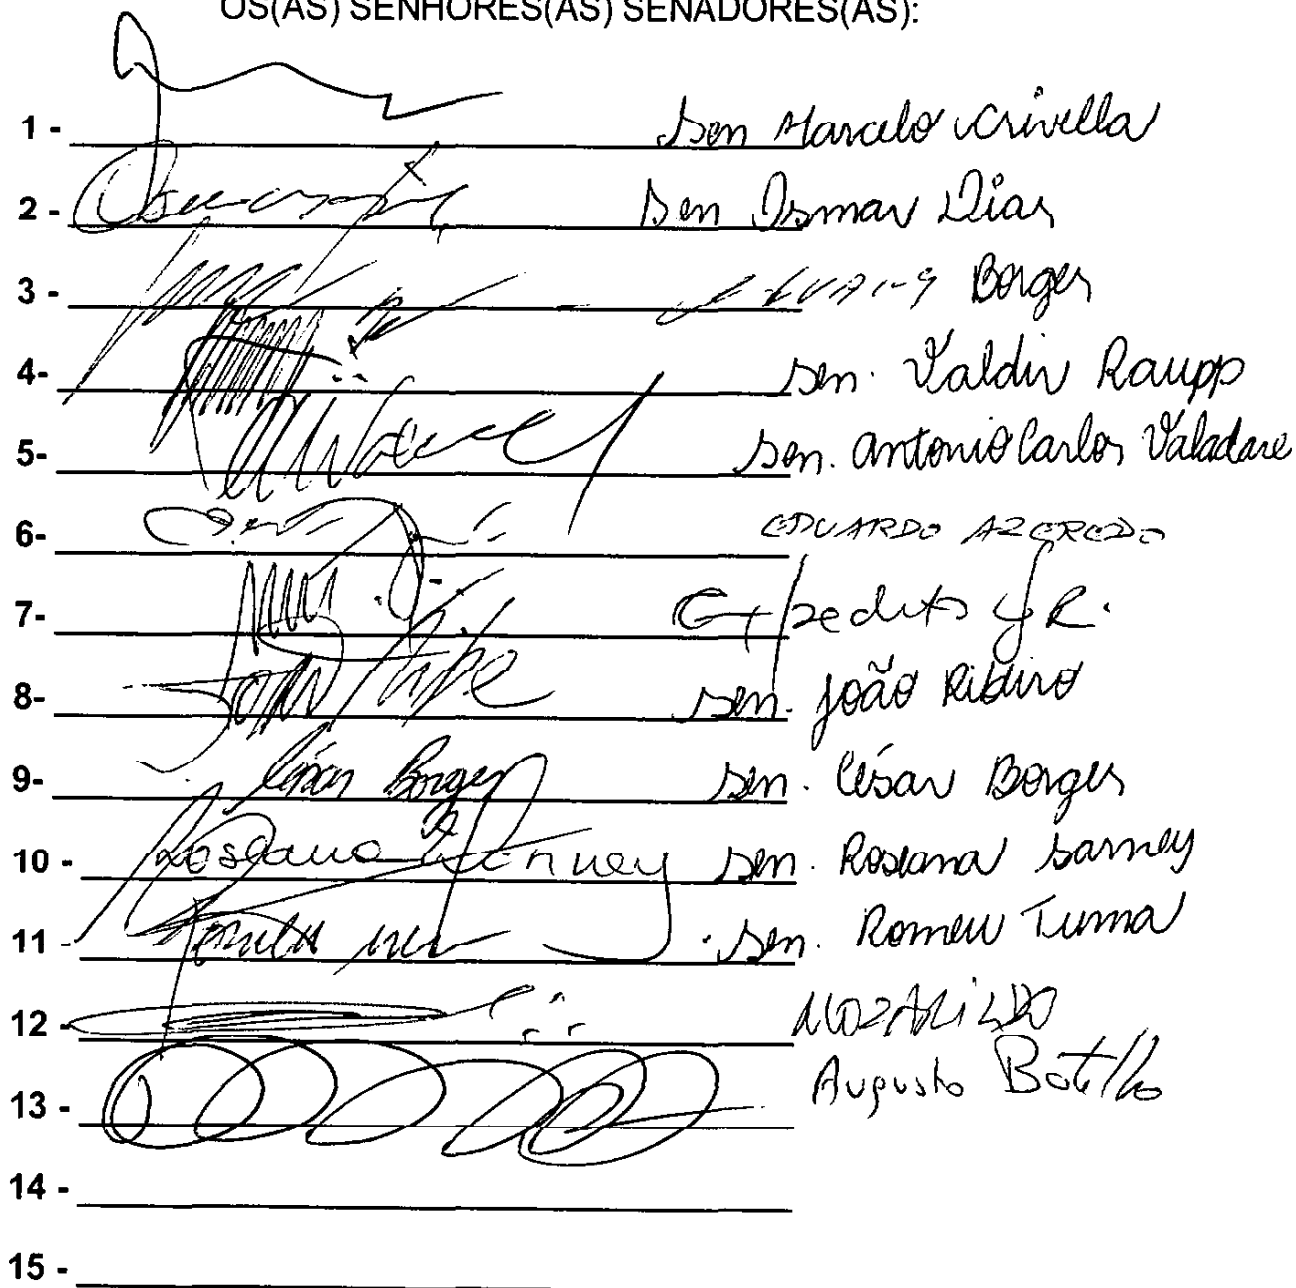 OS(AS) SENHORES(AS) SENADORES(AS):
1 - Sen Marcelo Crivella
2 - Sen Osmar Dias
3 - Borges
4- Sen. Valdir Raupp
5- Sen. Antonio Carlos Valadare
6- EDUARDO AZEREDO
7- Expedito JR.
8- Sen. João Ribeiro
9- César Borges Sen. César Borges
10 - Roseana Sarney Sen. Roseana Sarney
11 - Sen. Romeu Tuma
12 - MOZARILDO
13 - Augusto Botelho
14 -
15 -